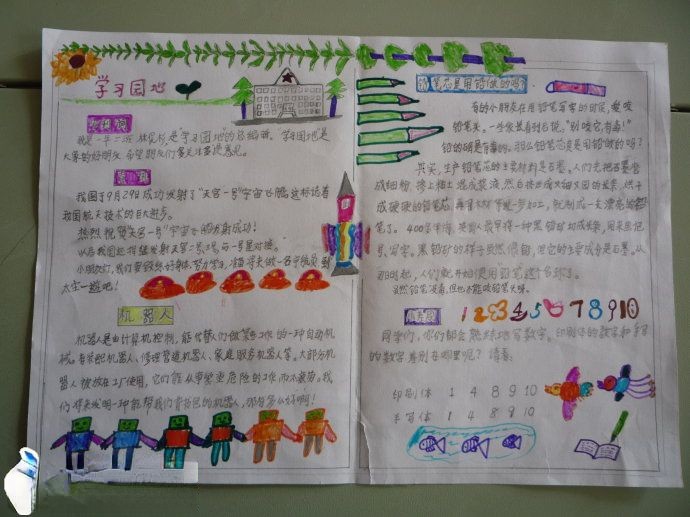 学习园地
我是一年二班
是学习园地的总编辑。学习园地是
大家的好朋友,希望朋友们多关注多提意见。
我国于9月29日成功发射了"天宫一号"宇宙飞船,这标志着
我国航天技术的巨大进步。
热烈祝贺天宫一号宇宙飞船发射成功!
以后我国还将继续发射天宫二号、三号,与一号星对接。
小朋友们,我们要锻炼好身体,努力学习,准备将来做一名宇航员到
太空一游吧!
机器人
机器人是由计算机控制,能代替人们做某些工作的一种自动机
械。有采掘机器人、修理管道机器人、家庭服务机器人等。大部分机
器人被放在工厂使用,它们能从事繁重危险的工作而不疲劳。我
们将来发明一种能帮我们背书包的机器人,那有多么好啊!
铅笔芯是用铅做的吗?
有的小朋友在用铅笔写字的时候,爱咬
铅笔头。一些家长看到后说,"别咬它,有毒!"
铅的确是有毒的。那么铅笔芯真是用铅做的吗?
其实,生产铅笔芯的主要材料是石墨。人们先把石墨磨
成细粉,掺上粘土,混成浆液,然后挤压成又细又圆的长条,烘干
成硬硬的铅笔芯,再
进一步加工,就制成一支漂亮的铅
笔了。400多年前,英国人最早将一种黑铅切成长条,用来画记
号、写字。黑铅矿的样子虽然像铅,但它的主要成分是石墨。从
那时起,人们就开始使用铅笔这个名称了。
虽然铅笔没毒,但也不能咬铅笔头呀。
1 2 3 4 5 6 7 8 9 10
同学们,你们都会熟练地写数字。印刷体的数字和手写
的数字差别在哪里呢?请看:
印刷体 1 4 8 9 10
手写体 1 4 8 9 10